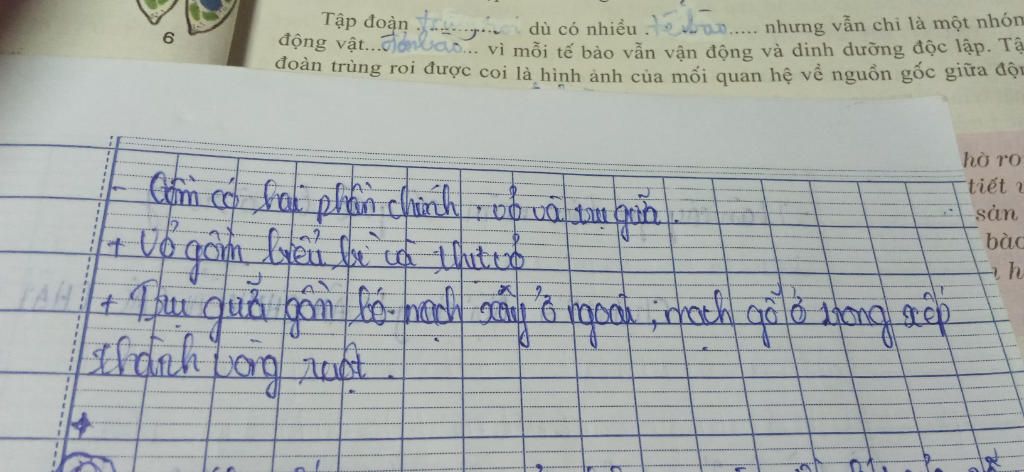 6
Tập đoàn trùng roi dù có nhiều tế bào nhưng vẫn chỉ là một nhón
động vật...đơn bào... vì mỗi tế bào vẫn vận động và dinh dưỡng độc lập. Tậ
đoàn trùng roi được coi là hình ảnh của mối quan hệ về nguồn gốc giữa độn
hờ ro
tiết
sản
bào
h
- Gồm có hai phần chính : vỏ và trụ giữa.
+ Vỏ gồm biểu bì và thịt vỏ
+ Trụ giữa gồm bó mạch rây ở ngoài, mạch gỗ ở trong xếp
thành vòng ruột.
+